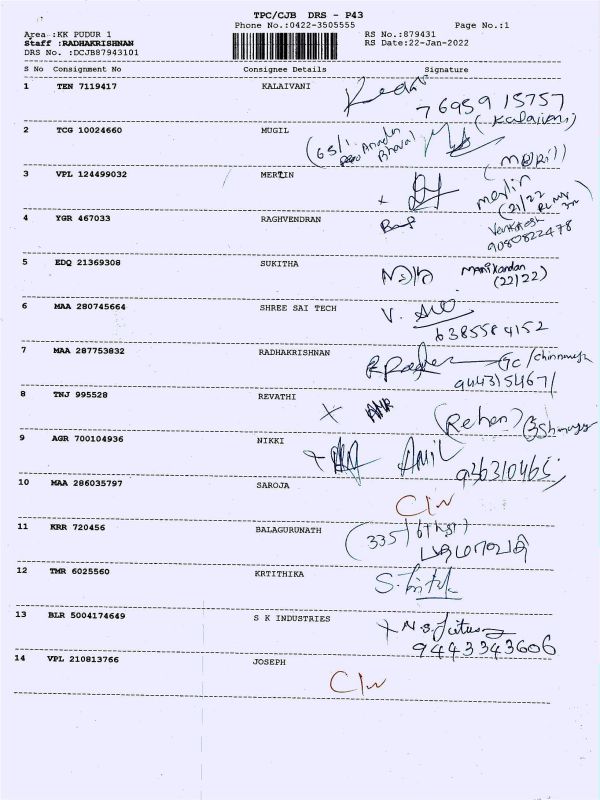 TPC/CJB DRS - P43
Phone No.:0422-3505555 Page No.:1
Area :KK PUDUR 1 RS No.:879431
Staff :RADHAKRISHNAN RS Date:22-Jan-2022
DRS No. :DCJB87943101
S No Consignment No Consignee Details Signature
1 TEN 7119417 KALAIVANI
7695915757
(Kalaivani)
2 TCG 10024660 MUGIL
(65/1
Bhaval
3 VPL 124499032 MERLIN
Merlin
(21/22
4 YGR 467033 RAGHVENDRAN
Venkatesh
9080822478
5 EDQ 21369308 SUKITHA
Manikandan
(22/22)
6 MAA 280745664 SHREE SAI TECH
V.
6385584152
7 MAA 287753832 RADHAKRISHNAN
GC/Chinmaya
9443154671
8 TNJ 995528 REVATHI
X (Rehan)
9 AGR 700104936 NIKKI
Anil
10 MAA 286035797 SAROJA
C/w
11 KRR 720456 BALAGURUNATH
(335/
12 TMR 6025560 KRTITHIKA
13 BLR 5004174649 S K INDUSTRIES
X N.S.
9443343606
14 VPL 210813766 JOSEPH
C/w